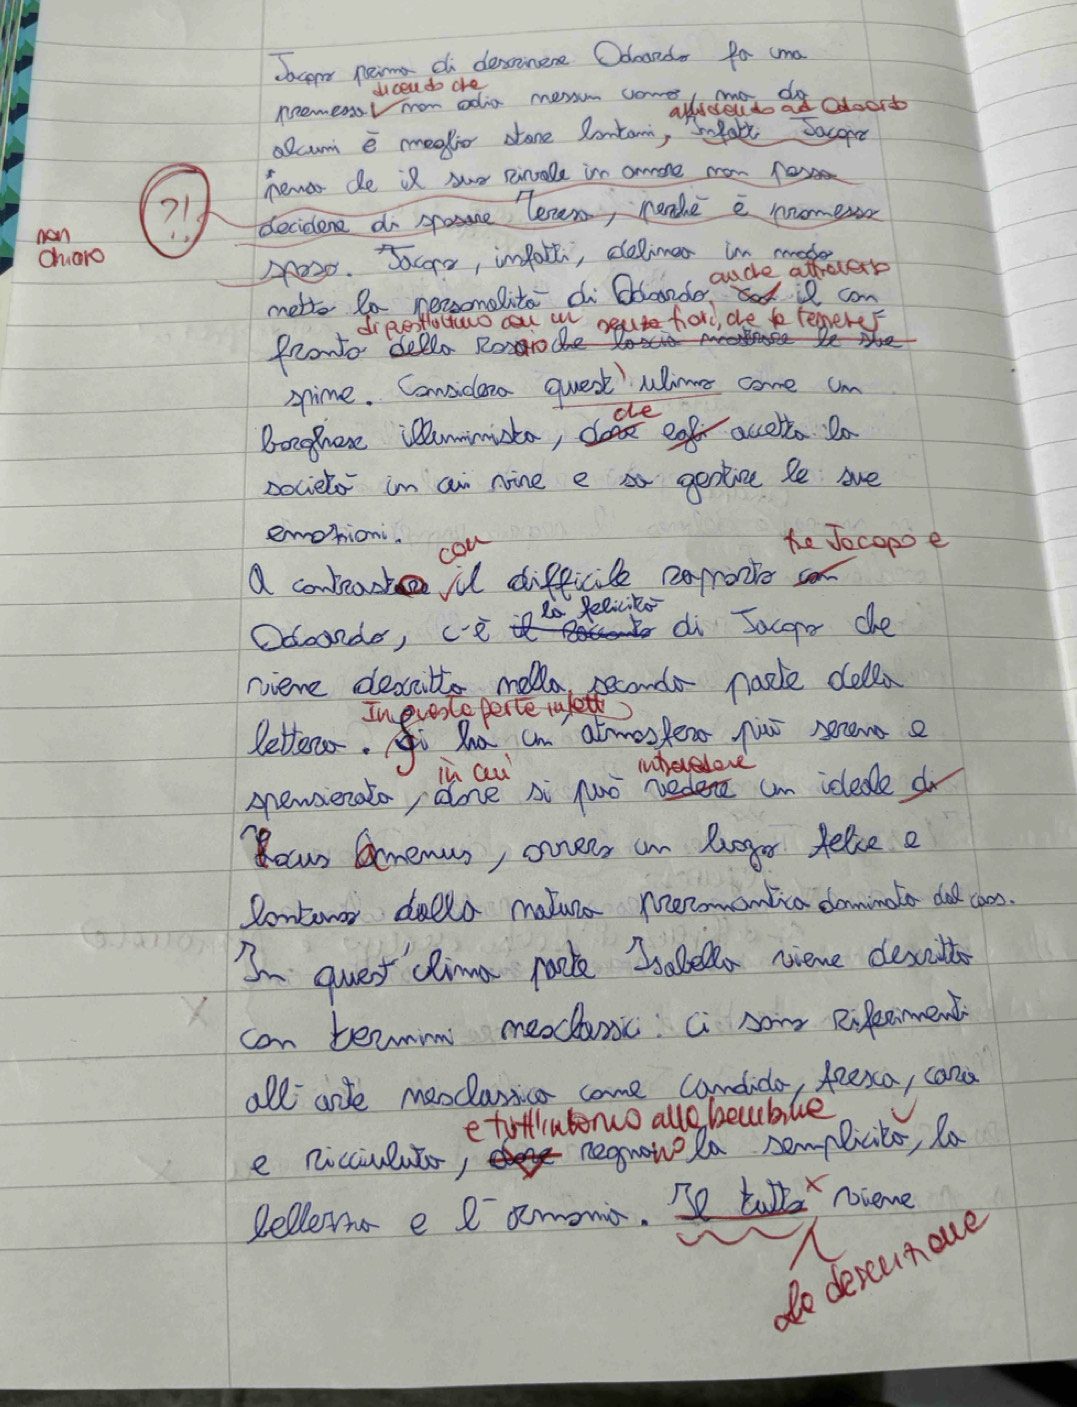 Jacopo prima di descrivere Odoardo fa una
dicendo che
premessa non odia nessun uomo, ma da
alludendo ad Odoardo
alcuni è meglio stare lontani, Infatti Jacopo
pensa che il suo rivale in amore non possa
?!
decidere di sposare Teresa, perchè è promesso
non
chiaro
sposo. Jacopo, infatti, delinea in modo
anche attraverso
netto la personalità di Odoardo, il con
di post senza fiori, che fa temere
fronto della rosa che lascia mostrare le sue
spine. Considera quest'ultimo come un
che
borghese illuminista, dove egli accetta la
società in cui vive e sa gestire le sue
emozioni.
con tra Jacopo e
A contrastare il difficile rapporto con
la felicità
Odoardo, c'è il racconto di Jacopo che
viene descritta nella seconda parte della
In questa parte infatti
lettera. Si ha un'atmosfera più serena e
in cui intravedere
spensierata, dove si può vedere un ideale di
Locus Amenus, ovvero un luogo felice e
lontano dalla natura preromantica dominata dal caos.
In quest'ultima parte Isabella viene descritta
con termini neoclassici: ci sono riferimenti
all'arte neoclassica come candida, fresca, cara
e tutt'intorno alla bambina
e ricciuluta, dove regnano la semplicità, la
bellezza e l'armonia. Il tutto viene
La descrizione